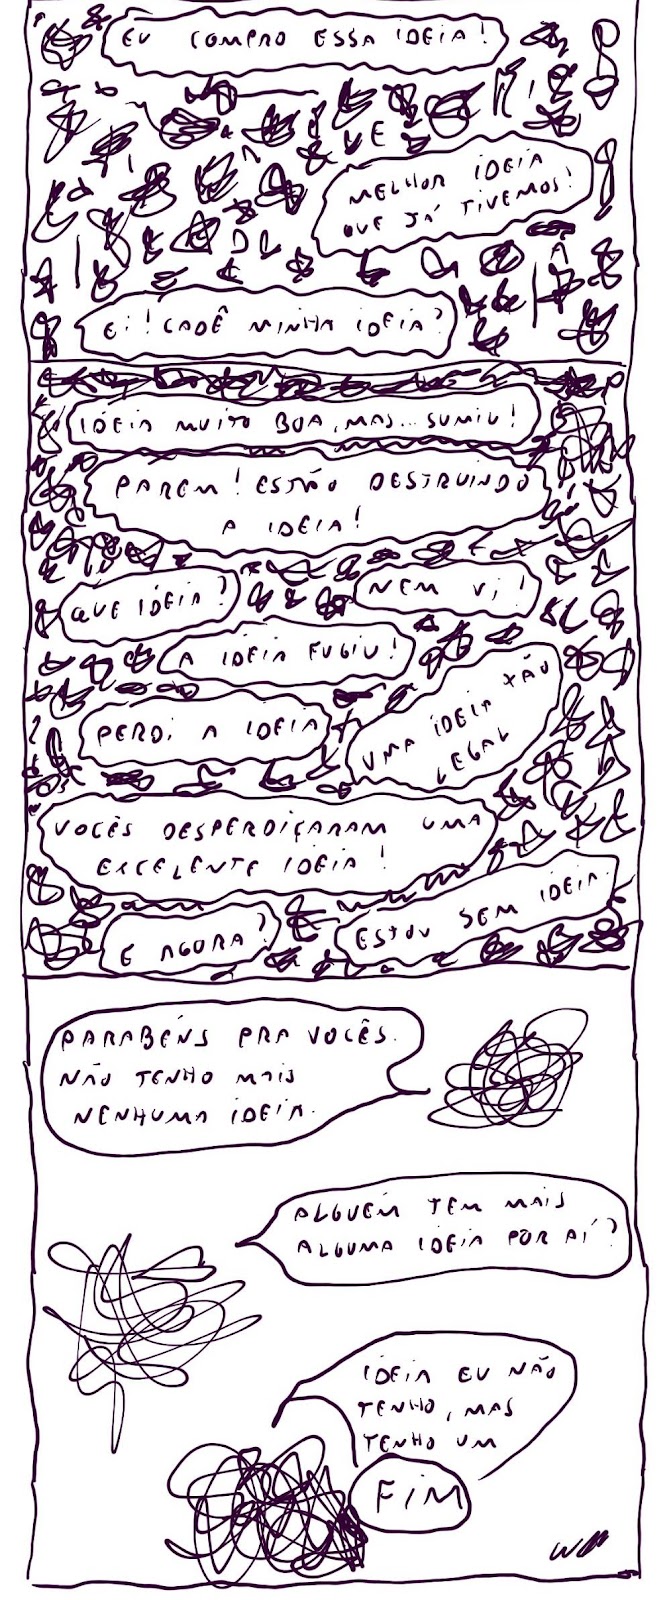 EU COMPRO ESSA IDEIA!
MELHOR IDEIA
QUE JÁ TIVEMOS!
EI! CADÊ MINHA IDEIA?
IDEIA MUITO BOA, MAS... SUMIU!
PAREM! ESTÃO DESTRUINDO
A IDEIA!
QUE IDEIA?
NEM VI!
A IDEIA FUGIU!
PERDI A IDEIA
UMA IDEIA TÃO
LEGAL
VOCÊS DESPERDIÇARAM UMA
EXCELENTE IDEIA!
E AGORA?
ESTOU SEM IDEIA.
PARABÉNS PRA VOCÊS.
NÃO TENHO MAIS
NENHUMA IDEIA.
ALGUÉM TEM MAIS
ALGUMA IDEIA POR AÍ?
IDEIA EU NÃO
TENHO, MAS
TENHO UM
FIM